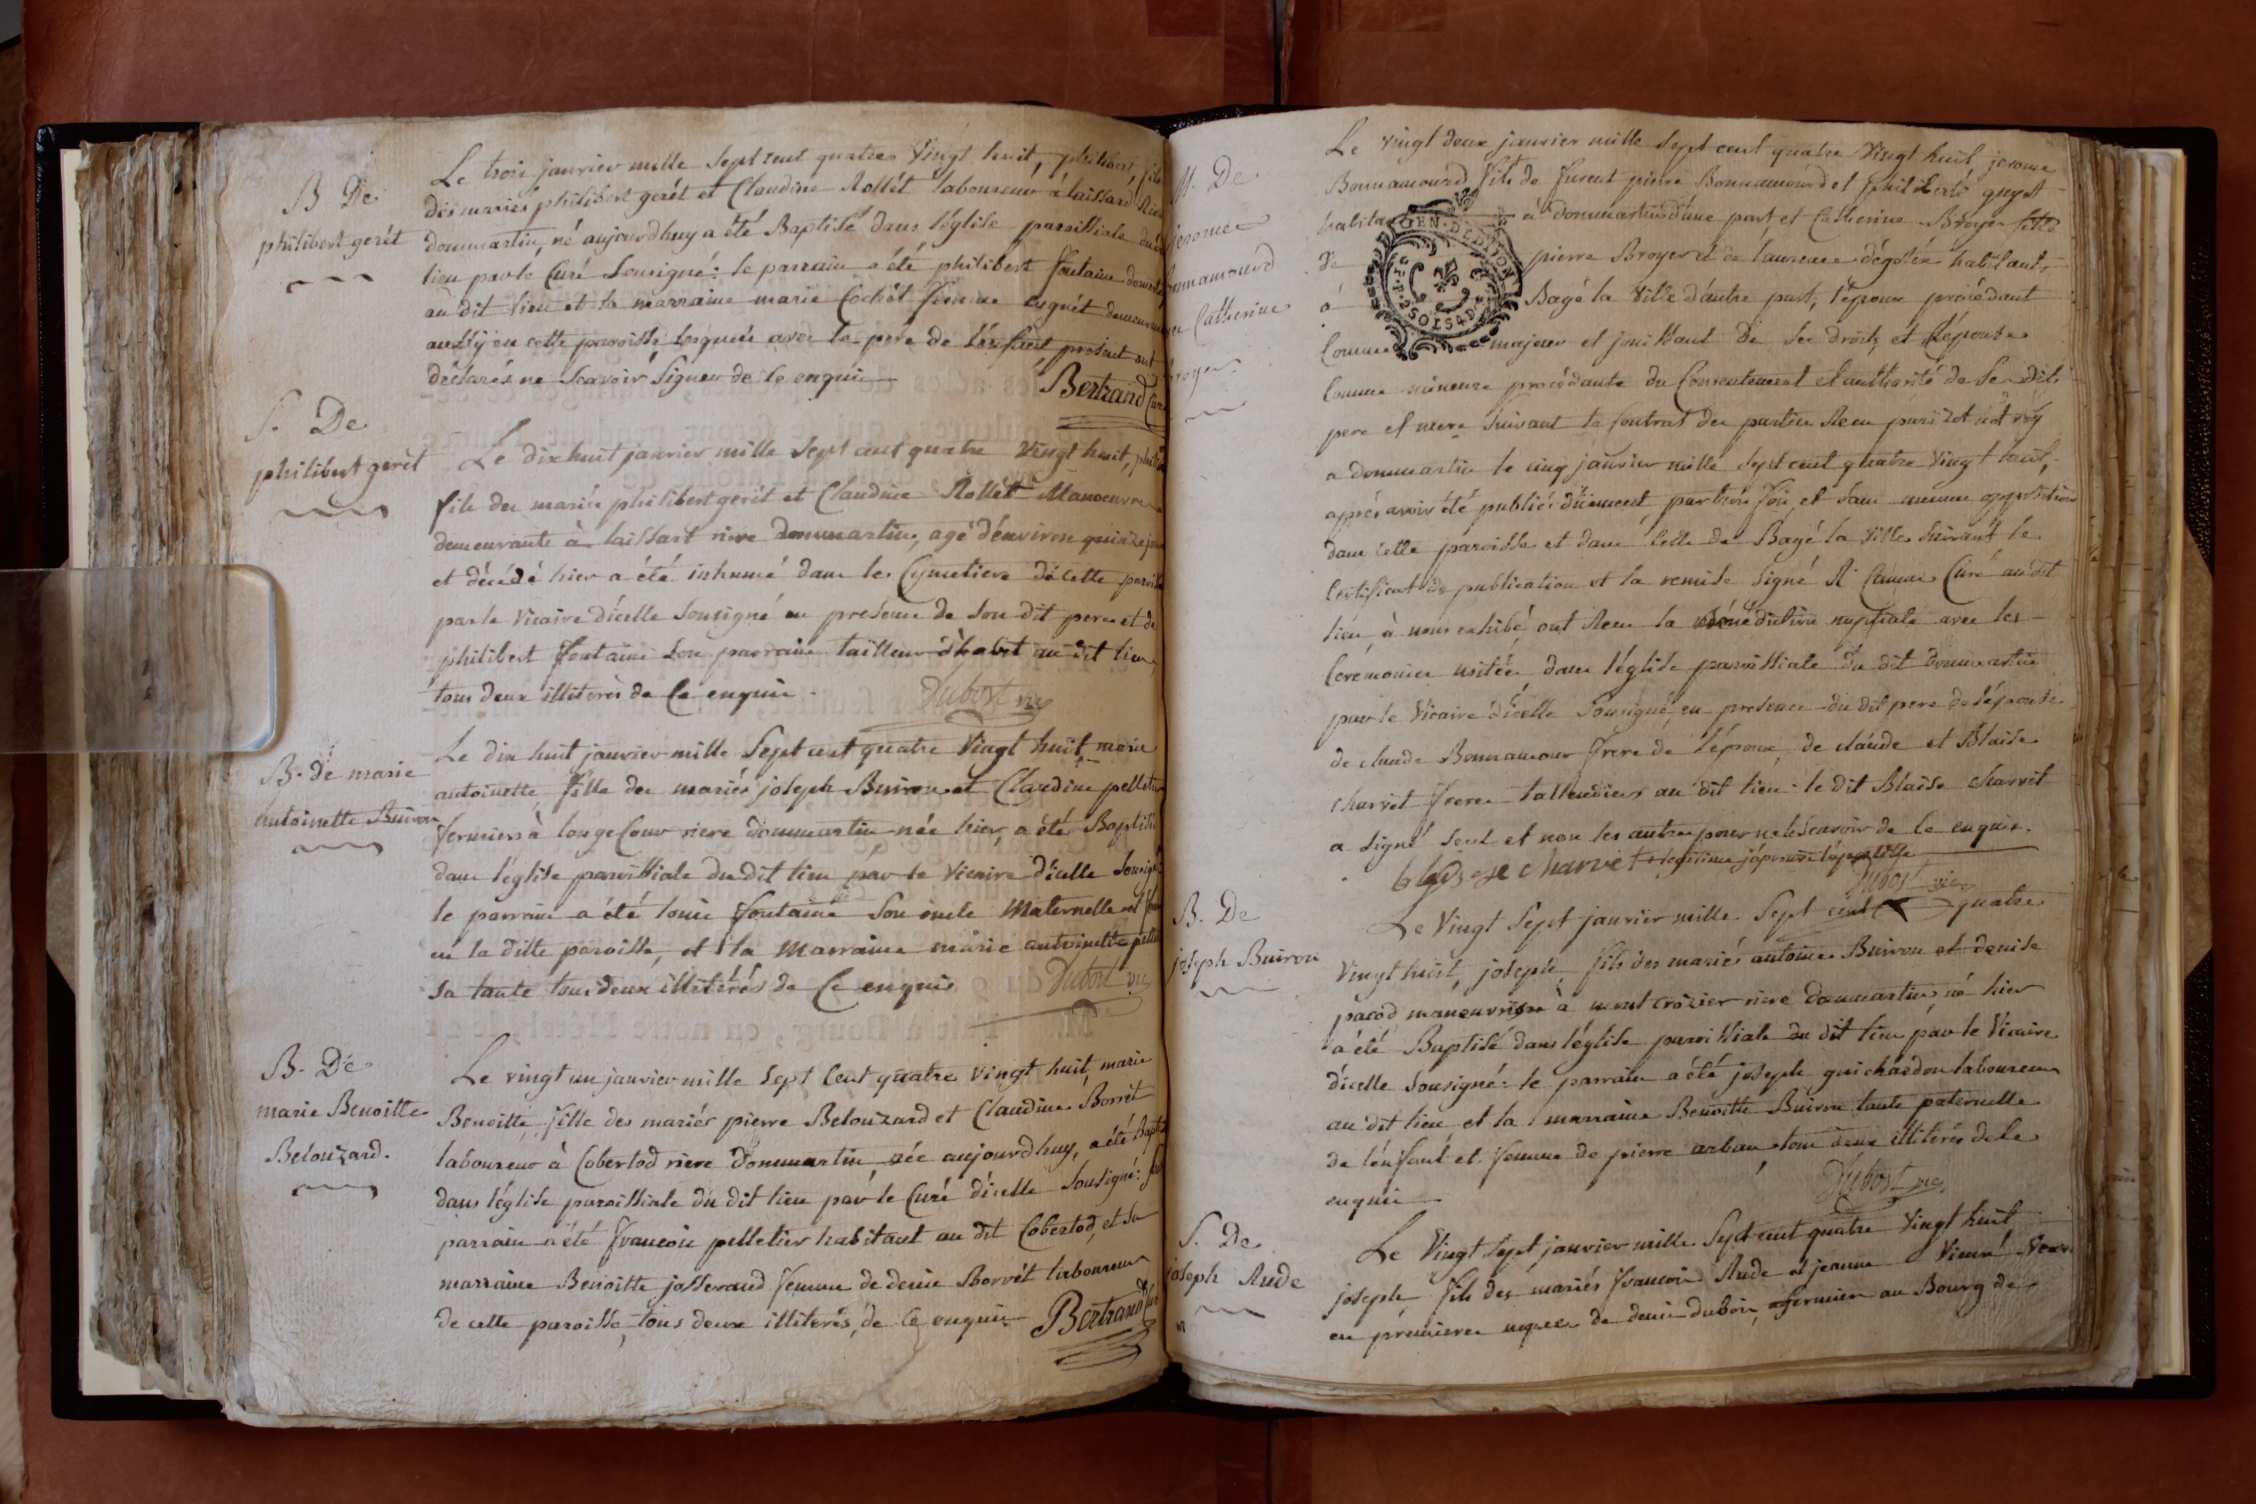 B De
philibert gerét
Le trois janvier mille Sept cent quatre Vingt huit, philibert, fils
des mariés philibert gerét et Claudine Rollét laboureur à laissard
dommartin, né aujourdhuy a été Baptisé dans l'église paroissiale du dit
lieu par le Curé Sousigné: le parrain a été philibert fontaine
au dit lieu et la marraine marie Cochét femme
aussÿ en cette paroisse lesquels avec le pere de l'enfant present ont
déclarés ne Scavoir Signer de ce enquis
Bertrand Curé
S. De
philibert gerét
Le dix huit janvier mille Sept cent quatre Vingt huit,
fils des mariés philibert gerét et Claudine Rollét Manoeuvre
demeurants à laissart riere dommartin, agé d'environ quinze jours
et décédé hier a été inhumé dans le Cymetiere de cette paroisse
par le Vicaire d'icelle Sousigné en presence de Son dit pere et de
philibert fontaine Son parrain tailleur d'habit au dit lieu
tous deux illiterés de Ce enquis.
Dubost vic
B. de marie
Antoinette Buiron
Le dix huit janvier mille Sept cent quatre Vingt huit, marie
antoinette fille des mariés joseph Buiron et Claudine pelletier
fermiers à longeCour riere dommartin née hier, a été Baptisée
dans l'église paroissiale du dit lieu par le Vicaire d'icelle Sousigné
le parrain a été louis fontaine Son oncle Maternelle
en la ditte paroisse, et la Marraine marie antoinette
Sa tante tous deux illiterés de Ce enquis
Dubost vic
B. De
marie Benoitte
Belouzard.
Le vingt un janvier mille Sept Cent quatre vingt huit, marie
Benoitte fille des mariés pierre Belouzard et Claudine Borrét
laboureur à Cobertod riere Dommartin née aujourdhuy, a été Baptisée
dans l'église paroissiale du dit lieu par le Curé d'icelle Sousigné: Son
parrain a été francois pelletier habitant au dit Cobertod, et Sa
marraine Benoitte josserand femme de denis Borrét laboureur
de cette paroisse, tous deux illiterés, de Ce enquis
Bertrand Curé
M. De
jerome
Bonnamourd
Catherine
Broyer
Le vingt deux janvier mille Sept cent quatre Vingt huit jerome
Bonnamourd fils de furent pierre Bonnamourd et philiberte guyot
à dommartin d'une part, et Catherine Broyer fille
de pierre Broyer et de laurence habitants
à Bagé la Ville d'autre part, l'époux procédant
Comme majeur et jouissant de Ses droits et l'épouse
GEN. DE DIJON
SOLS
Comme mineure procédante du Consentement et authorité de Ses dits
pere et mere Suivant le Contrat des parties Recu par
a dommartin le cinq janvier mille Sept cent quatre Vingt huit,
après avoir été publiés düement par trois fois et Sans aucune opposition
dans cette paroisse et dans Celle de Bagé la Ville Suivant le
Certificat de publication et la remise Signé Curé au dit
lieu à nous exhibé, ont Recu la Bénédiction nuptiale avec les
Ceremonies usitées dans l'église paroissiale du dit Dommartin
par le Vicaire d'icelle Sousigné, en presence du dit pere de l'épouse
de claude Bonnamour frere de l'époux, de claude et Blaise
charvét freres taillandiers au dit lieu. le dit Blaise charvét
a Signé Seul et non les autres pour ne le Scavoir de Ce enquis.
blaise charvet
Dubost vic
B. De
joseph Buiron
Le Vingt Sept janvier mille Sept cent quatre
Vingt huit, joseph, fils des mariés antoine Buiron et denise
pacod manouvrier à mont crozier riere dommartin né hier
a été Baptisé dans l'église paroissiale du dit lieu par le Vicaire
d'icelle Sousigné: le parrain a été joseph guichardon laboureur
au dit lieu et la marraine Benoitte Buiron tante paternelle
de l'enfant et femme de pierre arban tous deux illiterés de Ce
enquis
Dubost vic
S. De
joseph Aude
Le Vingt Sept janvier mille Sept cent quatre Vingt huit
joseph, fils des mariés francois Aude et jeanne
en premieres noces de denis dubois, fermier au Bourg de